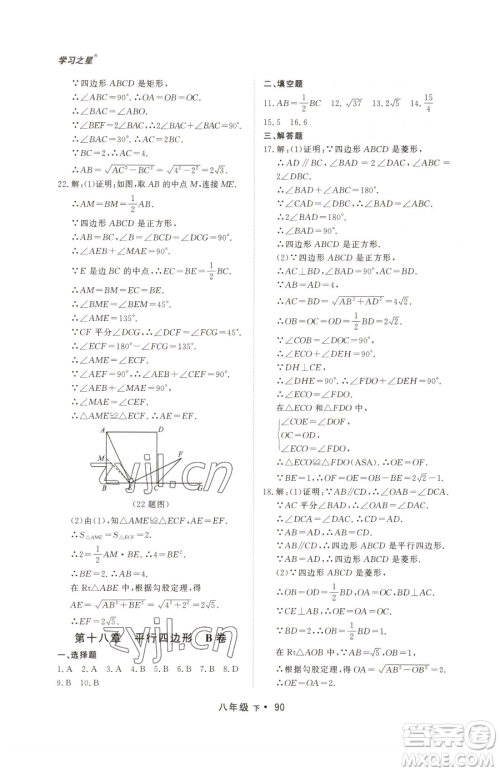 学习之星®
∵四边形 ABCD 是矩形,
∴∠ABC=90°.∴OA=OB=OC.
∴∠BAC=∠ABO.
∵∠BEF=2∠BAC,∴∠BAO+2∠BAO=90°.
∴∠BAC=30°.∴AC=2BC.
∵BC=2,∴AC=4.
∴AB=√(AC²-BC²)=√(4²-2²)=2√3.
22.解:(1)证明:如图,取 AB 的中点 M,连接 ME.
∴AM=BM=1/2AB.
∵四边形 ABCD 是正方形,
∴AB=BC,∠B=∠BCD=∠DCG=90°.
∴∠AEB+∠MAE=90°.
∵E 是边 BC 的中点,∴BE=EC=1/2BC.
∴AM=BM=BE=EC.
∴∠BME=∠BEM=45°.
∴∠AME=135°.
∵CF 平分∠DCG,∴∠FCG=45°.
∴∠ECF=180°-∠FCG=135°.
∵∠AEF=90°,∴∠AEB+∠FEC=90°.
∴∠MAE=∠CEF.
∴△AME≌△ECF.
A D F M B E C G
(22 题图)
(2)由(1),知△AME≌△ECF,AE=EF.
∴S△AME=S△ECF=2.
∴2=1/2AM·BE.∴BE=2.
∴AB=4.
在 Rt△ABE 中,根据勾股定理,得
AE=√(AB²+BE²)=√(4²+2²)=2√5.
∴EF=2√5.
第十八章 平行四边形 B卷
一、选择题
1.A 2.A 3.A 4.D 5.B 6.D 7.B 8.D
9.B 10.B
二、填空题
11.AB=1/2BC 12.√37 13.√2 14.15/4
15.5 16.6
三、解答题
17.解:(1)证明:∵四边形 ABCD 是菱形,
∴AD∥BC,∠BAD=2∠DAC,∠ABC=2∠DBC.
∴∠BAD+∠ABC=180°.
∵∠CAD=∠DBC,∴∠BAD=∠ABC.
∴2∠BAD=180°.∴∠BAD=90°.
∴四边形 ABCD 是正方形.
(2)∵四边形 ABCD 是正方形,
∴AC⊥BD,AC=BD,OC=1/2AC,DO=1/2BD.
∵AB=AD=4,
∴BD=√(AB²+AD²)=4√2.
∴AO=OB=OC=OD=1/2BD=2√2.
∵∠COB=∠DOC=90°,
∴∠ECO+∠DEH=90°.
∵DH⊥CE,
∴∠FDO+∠DEH=90°.
∴∠ECO=∠FDO.
在△ECO 和△FDO 中,
∠COE=∠DOF,
OC=OD,
∠ECO=∠FDO,
∴△ECO≌△FDO(ASA).∴OE=OF.
∴BE=OB-OE=OB-OF=2√2-1.
18.解:(1)证明:∵OB=OD,∠AOB=∠COD,OA=OC,
∴△AOB≌△COD(SAS).∴∠OAB=∠OCD.
∴AB∥CD.∴四边形 ABCD 是平行四边形.
∵AB=BC,∴四边形 ABCD 是菱形.
(2)∵四边形 ABCD 是菱形,
∴OB=OD=1/2BD,OA=OC,AC⊥BD.
∵BD=2,∴OB=1/2BD=1.
在 Rt△AOB 中,AB=√5,OB=1,
根据勾股定理,得 OA=√(AB²-OB²)=2.
∴OA=OC=2.∴AC=2OA=4.
八年级 下·90
zyjl.cn
zyjl.cn
作业精灵